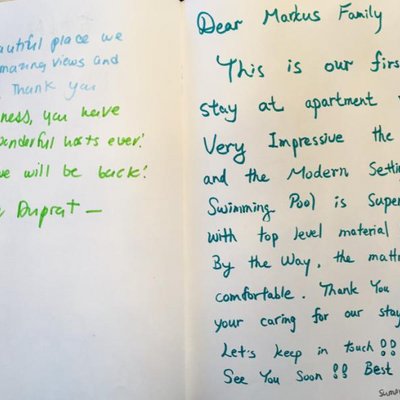 autiful place we
mazing views and
Thank you
ness, you have
onderful hosts ever!
we will be back!
Duprat —
Dear Markus Family
This is our firs
stay at apartment
Very Impressive the
and the Modern Settin
Swimming Pool is Super
with top level material
By the Way, the matt
comfortable. Thank You
your caring for our stay
Let's keep in touch!!
See You Soon!! Best